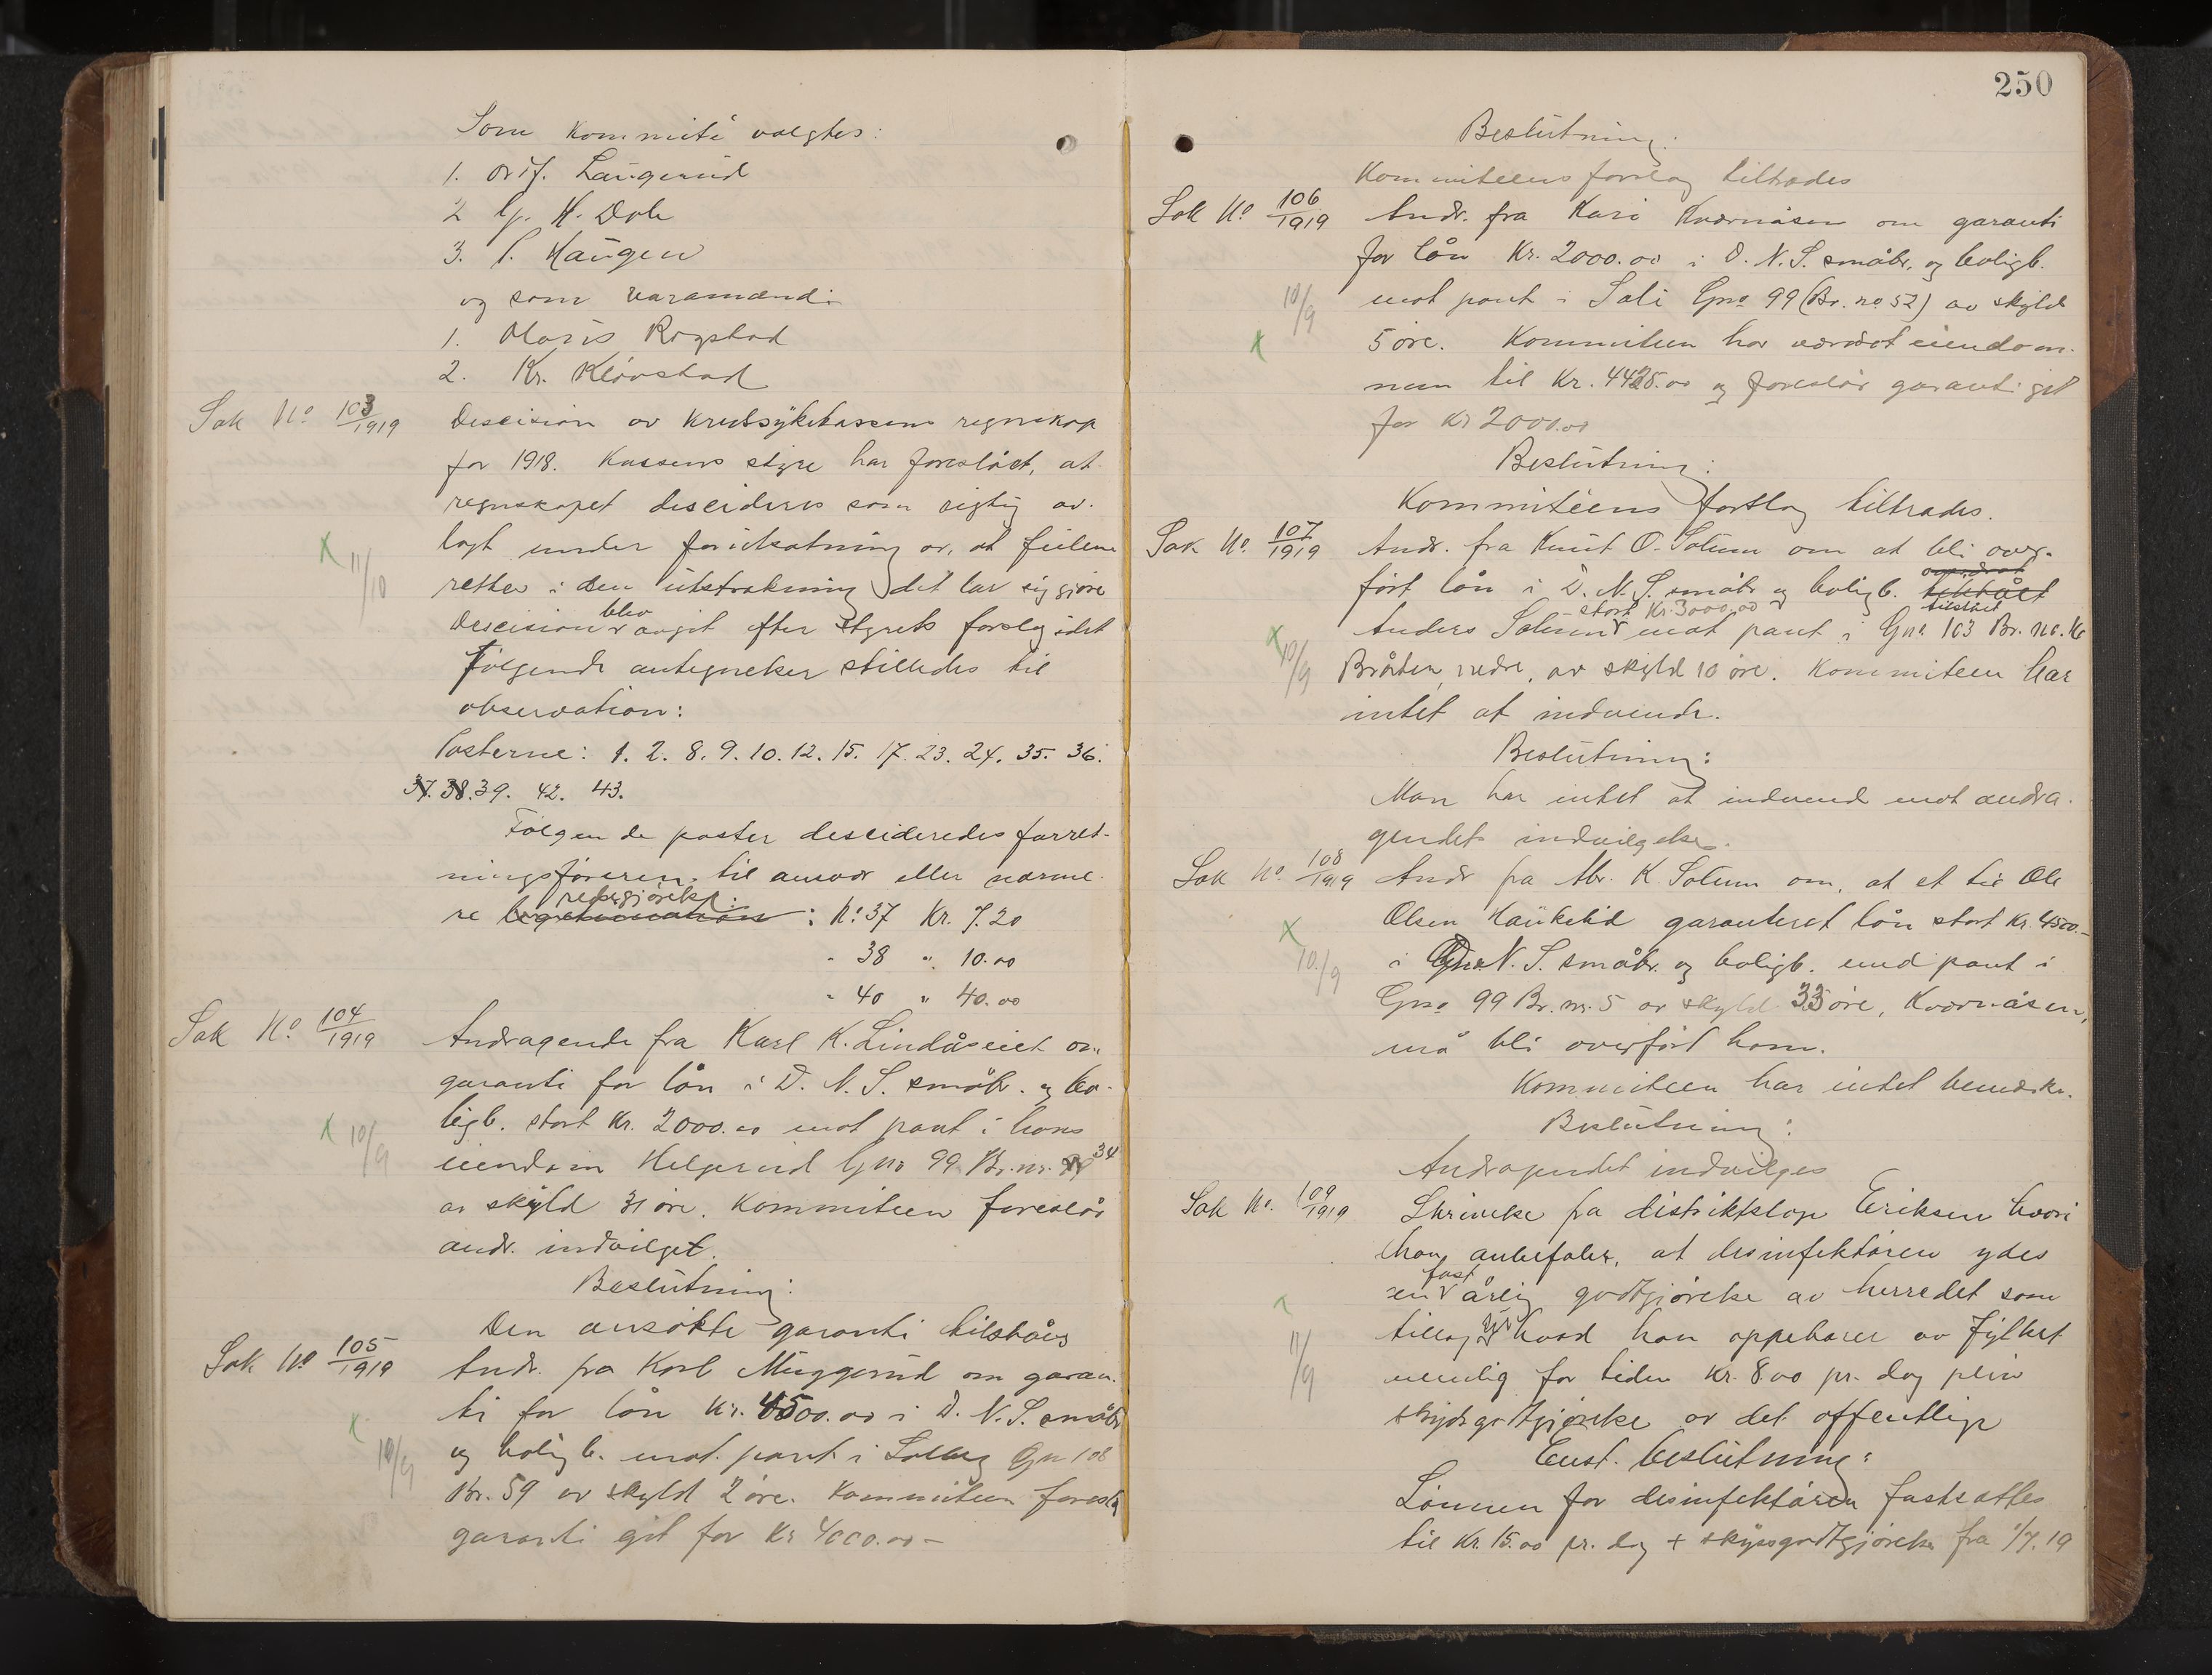 Som kommité valgtes:
1. ordf. Laugerud
2 G. K. Dole
3. P. Haugen
og som varamænd:
1. Olaus Rogstad
2. Kr. Kløvstad
Sak No 103/1919 Descision av kredssykekassens regnskap
for 1918. Kassens styre har foreslået, at
regnskapet descideres som rigtig av-
lagt under forutsætning av, at feilene
11/10
rettes i den utstrækning det lar sig gjøre
Descision blev avgit efter styrets forslag idet
følgende antegnelser stilledes til
observation:
Posterne: 1. 2. 8. 9. 10. 12. 15. 17. 23. 24. 35. 36.
37. 38. 39. 42. 43.
Følgende poster descideredes forret-
ningsføreren til ansvar eller nærme-
redegjørelse:
re legetimation : No 37 Kr. 7.20
" 38 " 10.00
" 40 " 40.00
Sak No 104/1919 Andragende fra Karl K. Lindåseiet om
garanti for lån i D. N. S. småbr. og bo-
ligb. stort Kr. 2000.00 mot pant i hans
10/9
eiendom Helgerud Gno 99 Br. nr. 34
av skyld 31 øre. Kommiteen foreslår
andr. indvilget.
Beslutning:
Den ansøkte garanti tilståes
Sak No 105/1919 Andr. fra Karl Muggerud om garan-
ti for lån Kr. 4500.00 i D. N. S. småbr
10/9
og boligb. mot pant i Solberg Gn 108
Br. 59 av skyld 2 øre. Kommiteen foreslår
garanti git for Kr 4000.00 –
250
Beslutning:
Kommiteens forslag tiltrædes
Sak No 106/1919 Andr. fra Kari Kværnåsen om garanti
for lån Kr. 2000.00 i D. N. S. småbr. og boligb.
10/9
mot pant i Sole Gno 99 (Br. no 52) av skyld
5 øre. Kommiteen har værdsat eiendom-
men til Kr. 4425.00 og foreslår garanti git
for Kr 2000.00
Beslutning:
Kommiteens forslag tiltrædes.
Sak No. 107/1919 Andr. fra Knut O. Solum om at bli over-
ført lån i D. N. S. småbr og boligb. tilstået
stort Kr. 3000,00 tilstået
Anders Solum mot pant i Gno 103 Br. no. 16
10/9
Bråten, nedre, av skyld 10 øre. Kommiteen har
intet at indvende.
Beslutning:
Man har intet at indvende mot andra-
gendets indvilgelse.
Sak No. 108/1919 Andr fra Abr. K. Solum om, at et til Ole
Olsen Haukelid garanteret lån stort Kr. 4500.–
10/9
i D. N. S. småbr. og boligb. med pant i
Gno 99 Br. nr. 5 av skyld 33 øre, Kværnåsen,
må bli overført ham.
Kommiteen har intet bemærke.
Beslutning:
Andragendet indvilges
Sak No. 109/1919 Skrivelse fra distriktslæge Eriksen hvori
han anbefaler, at desinfektøren ydes
fast
en årlig godtgjørelse av herredet som
tillæg til hvad han oppebærer av fylket
11/9
nemlig for tiden Kr. 8.00 pr. dag plus
skydsgodtgjørelse av det offentlige
Enst. beslutning:
Lønnen for desinfektøren fastsættes
til Kr. 15.00 pr. dag + skyssgodtgjørelse fra 1/7. 19